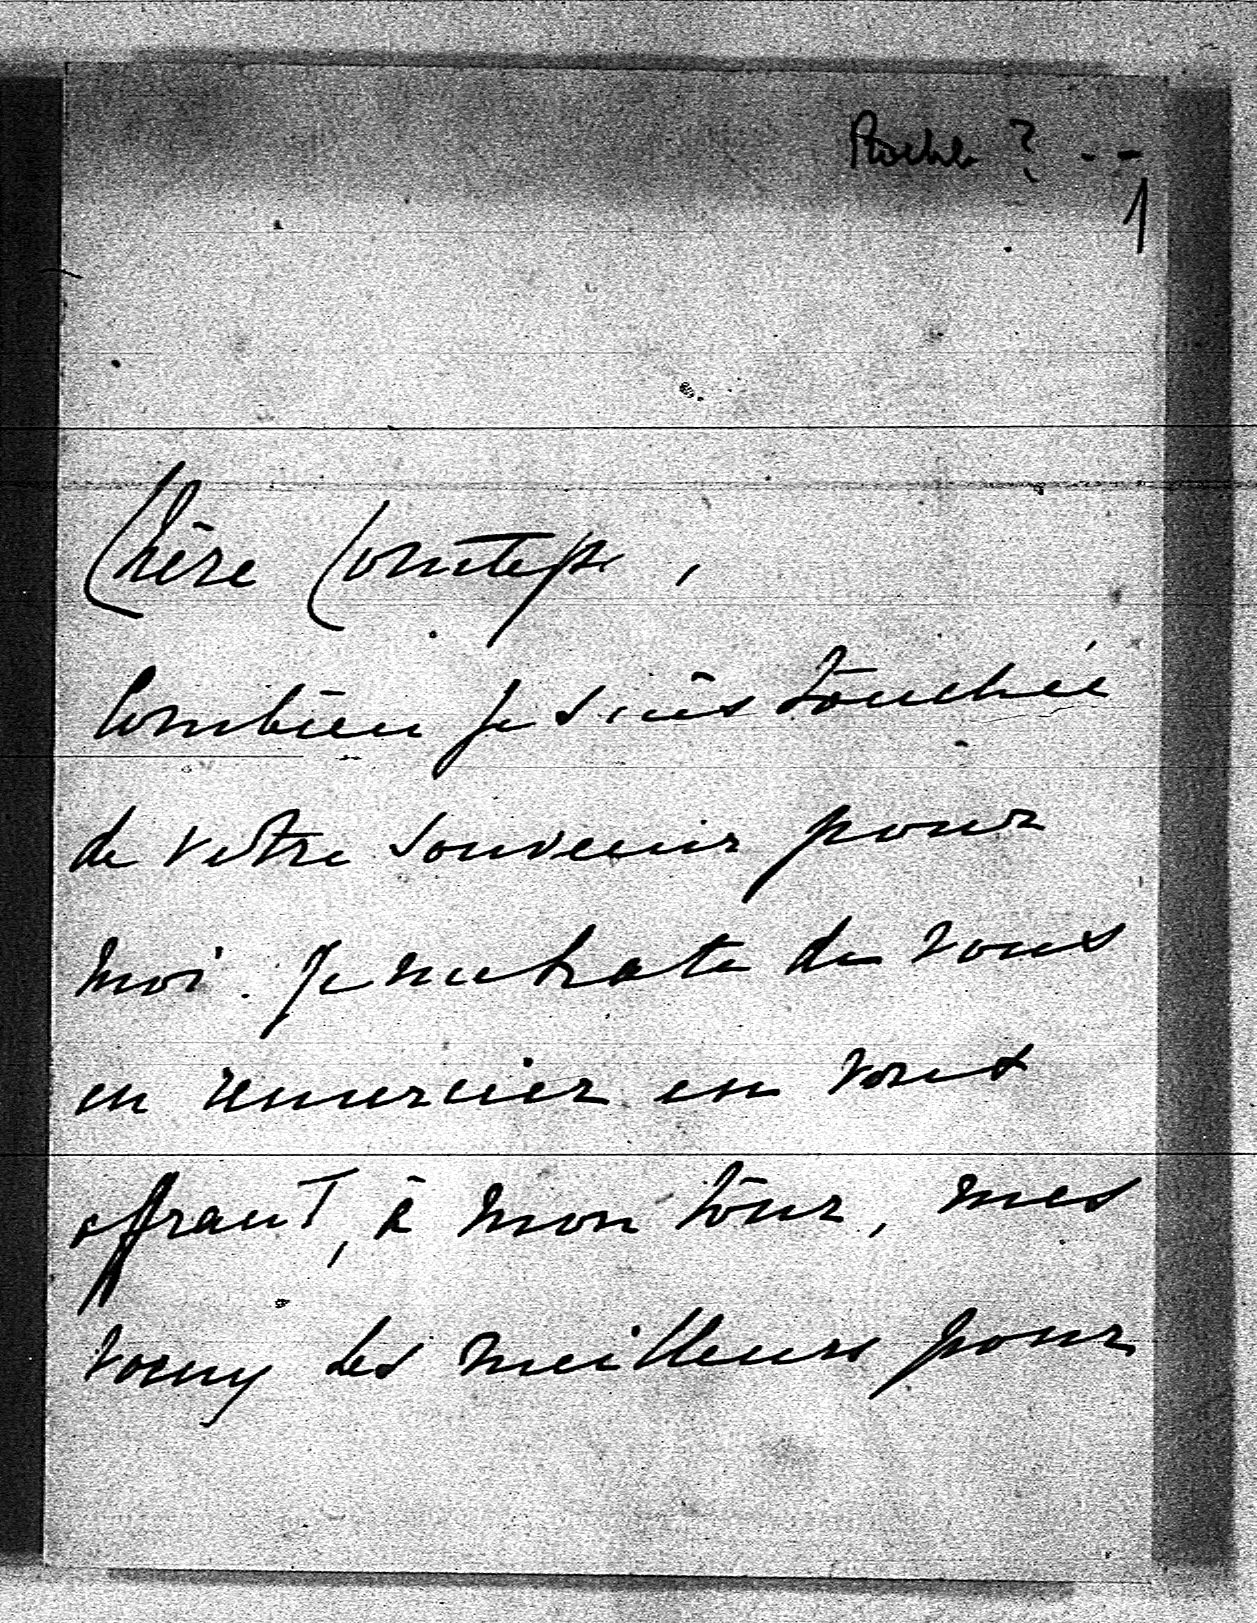 ? --
1
Chère Comtesse,
Combien je suis touchée
de votre souvenir pour
moi. Je me hate de vous
en remercier en vous
offrant, à mon tour, mes
voeux les meilleurs pour